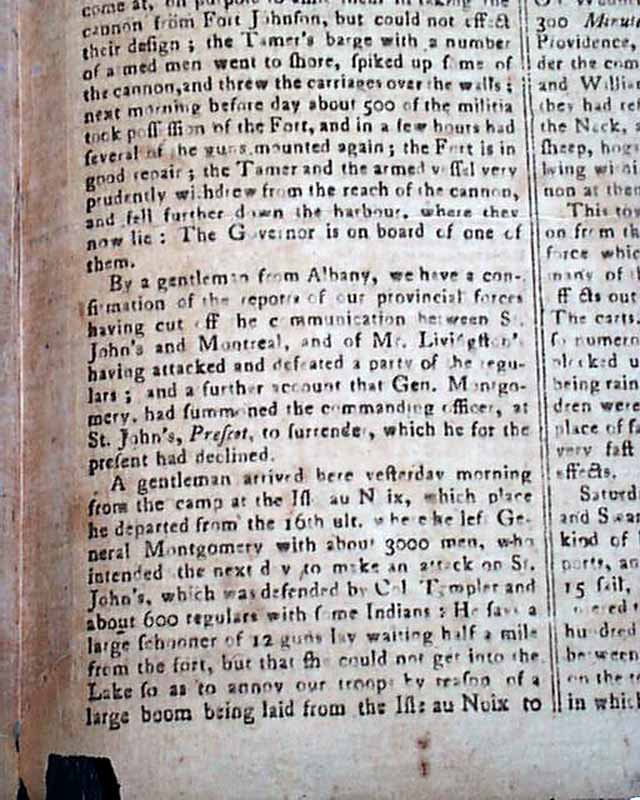 come at, on purpose to in taking the
cannon from Fort Johnſon, but could not effect
their deſign ; the Tamer's barge with a number
of a med men went to ſhore, ſpiked up ſ me of
the cannon, and threw the carriages over the walls ;
next morning before day about 500 of the militia
took poſſ ſſion of the Fort, and in a few hours had
ſeveral of he guns mounted again ; the Fort is in
good repair ; the Tamer and the armed v ſſel very
prudently wi hdrew from the reach of the cannon,
and fell further d wn the harbour, where they
now lie : The G vernor is on board of one of
them.
By a gentleman from Albany, we have a con-
firmation of the reports of our provincial forces
having cut off he c mmunication between S .
John's and Montreal, and of Mr. Livingſton's
having attacked and defeated a party of the regu-
lars ; and a further account that Gen. Montgo-
mery, had ſummoned the commanding officer, at
St. John's, Preſcot, to ſurrender, which he for the
preſent had declined.
A gentleman arrived here yeſterday morning
from the camp at the Iſl au N ix, which place
he departed from the 16th ult. where he left Ge-
neral Montgomery with about 3000 men, who
intended the next d y to make an attack on St.
John's, which was defended by C l. T mpler and
about 600 regulars with ſ me Indians : He ſays a
large ſchooner of 12 guns lay waiting half a mile
from the fort, but that ſhe could not get into the
Lake ſo as to annoy our troops by reaſon of a
large boom being laid from the Iſle au Noix to
300 Minute
Providence,
der the com
and Willia
they had re
the Neck,
ſheep, hog
lying wi
non at the
This to
on from th
force whic
many of
ff cts out
The carts,
ſo numero
blocked u
being rain
dren were
place of ſa
very faſt
effects.
Saturd
and Swa
kind of
ports, an
15 ſail,
hundred
between
on the
in which